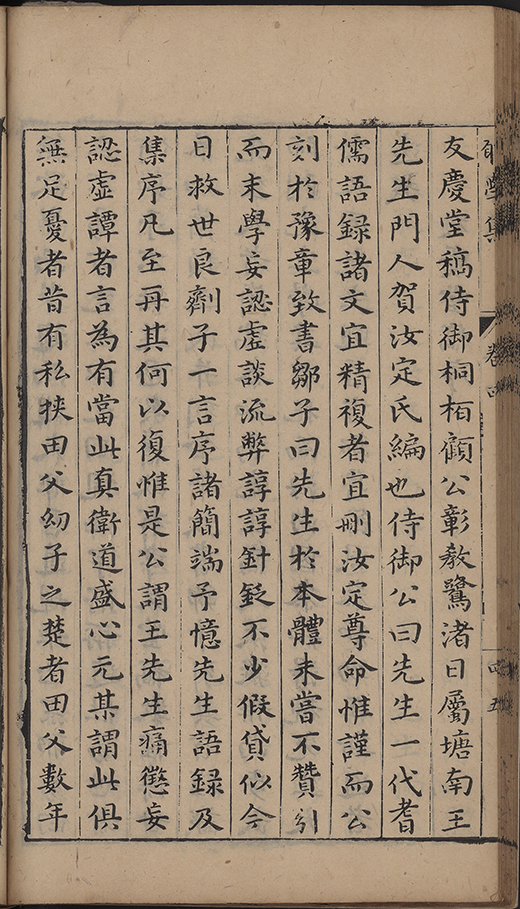 學集
卷四
四五
友慶堂稿侍御桐栢顧公彰教鷺渚日屬塘南王
先生門人賀汝定氏編也侍御公曰先生一代耆
儒語録諸文宜精複者宜刪汝定尊命惟謹而公
刻於豫章致書鄒子曰先生於本體未嘗不贊引
而末學妄認虛談流弊諄諄針鉽不少假貸似今
日救世良劑子一言序諸簡端予憶先生語録及
集序凡至再其何以復惟是公謂王先生痛懲妄
認虛譚者言為有當此真衛道盛心元某謂此俱
無足憂者昔有私挾田父幼子之楚者田父數年